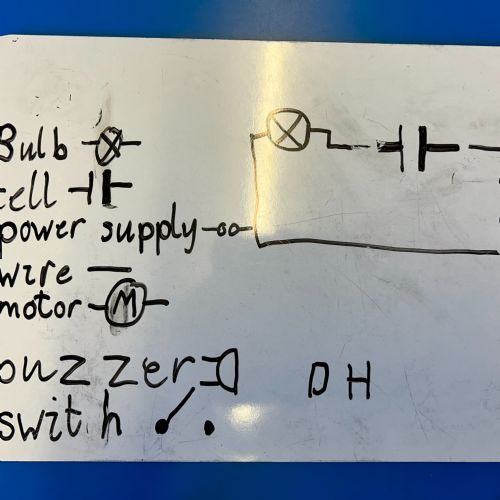 Bulb
cell
power supply
wire
motor M
buzzer
switch
DH